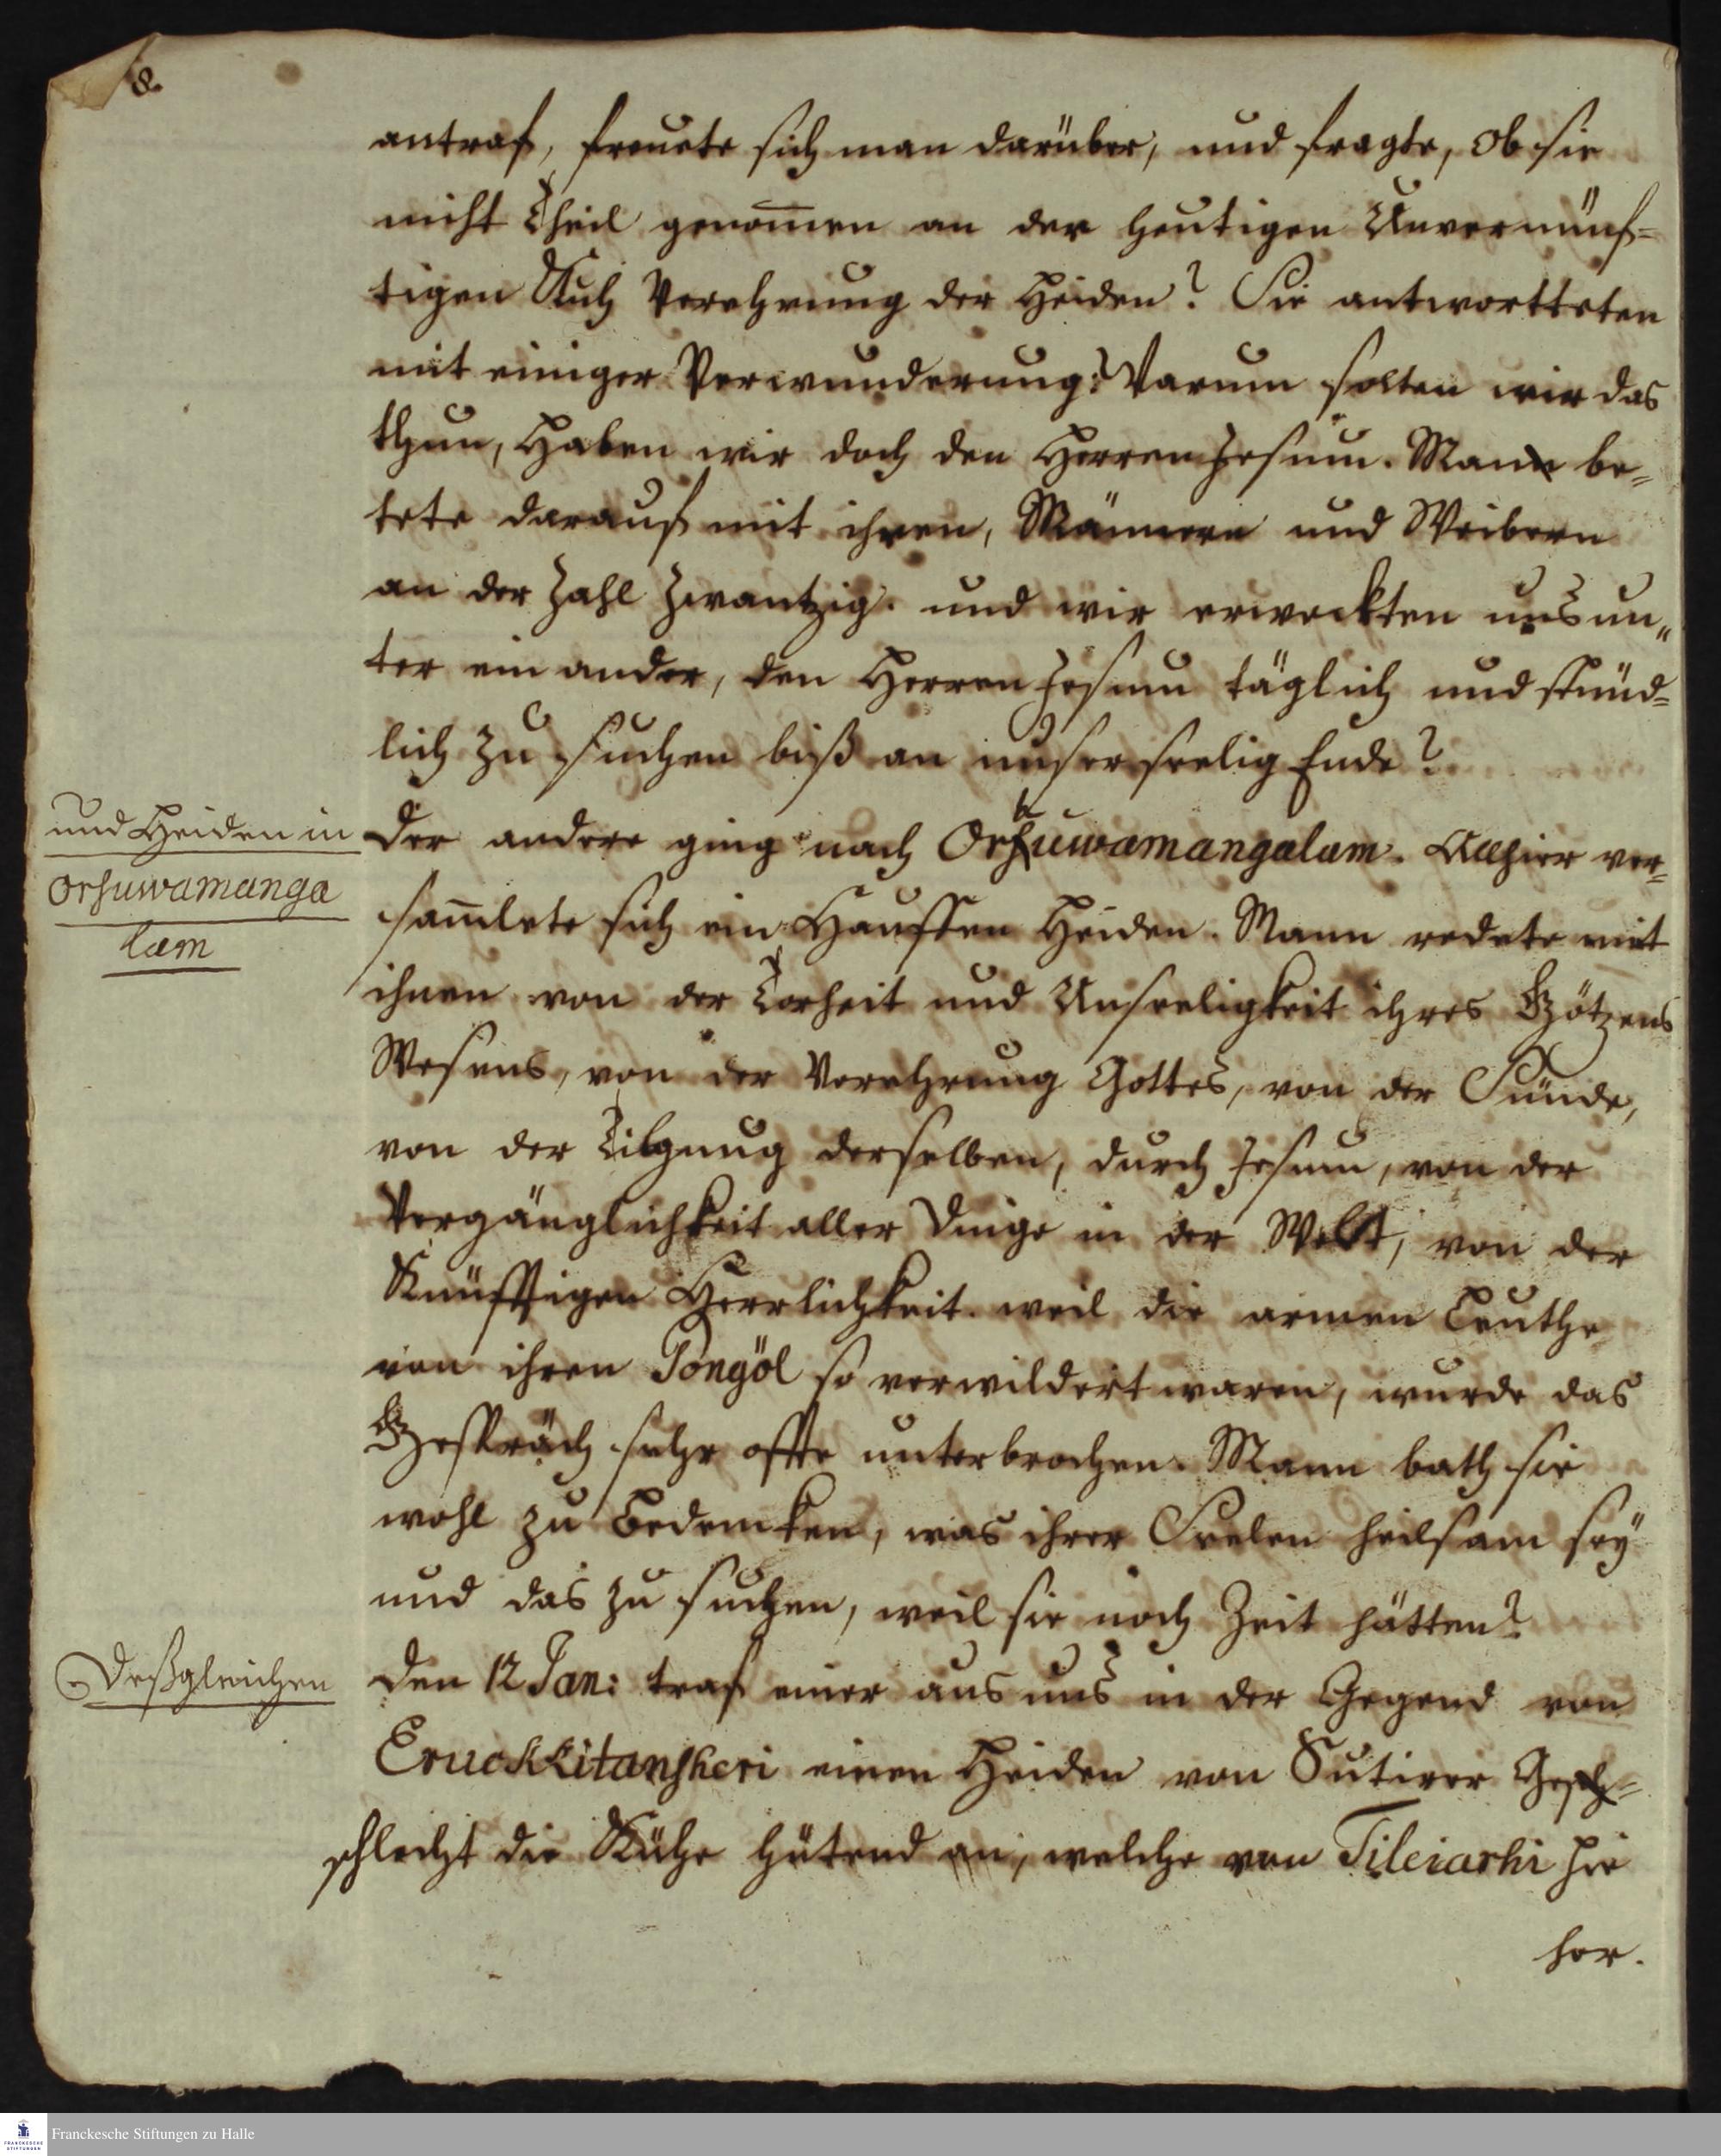 8.
antraf, freuete sich man darüber, und fragte, ob sie
nicht Theil genom̄en an der heutigen Unvernünf=
tigen Kuh Verehrung der Heiden? Sie antwortteten
mit einiger Verwunderung: Warum solten wir das
thun, Haben wir doch den Herren Jesum. Mann be=
tete darauf mit ihnen, Männern und Weibern
an der Zahl Zwantzig. und wir erweckten uns un=
ter ein ander, den Herren Jesum täglich und stünd=
lich zu suchen biß an unser seelig Ende?
und Heiden in
Orhuwamanga
lam
Der andere ging nach Orhuwamangalam. Allhier ver=
sam̄lete sich ein Hauffen Heiden. Mann redete mit
ihnen von der Torheit und Unseeligkeit ihres Götzens
Wesens, von der Verehrung Gottes, von der Sünde,
von der Tilgung derselben, durch Jesum, von der
Vergänglichkeit aller Dinge in der Welt, von der
Künfftigen Herrlichkeit. weil die armen Leuthe
von ihren Pongöl so verwildert waren, wurde das
Gespräch sehr offte unterbrochen. Mann bath sie
wohl zu Bedencken, was ihrer Seelen heilsam seÿ
und das zu suchen, weil sie noch Zeit hätten?
Deßgleichen
Den 12 Jan: traf einer aus uns in der Gegend von
Eruckkitansheri einen Heiden von Sutirer Gesch=
schlecht die Kühe hütend an, welche von Tileiarhi hie
her.
Franckesche Stiftungen zu Halle